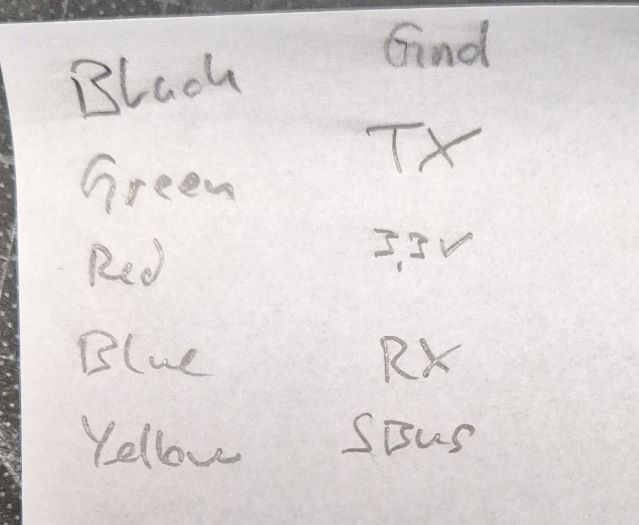 Black Gnd
Green TX
Red 3,3V
Blue RX
Yellow SBus